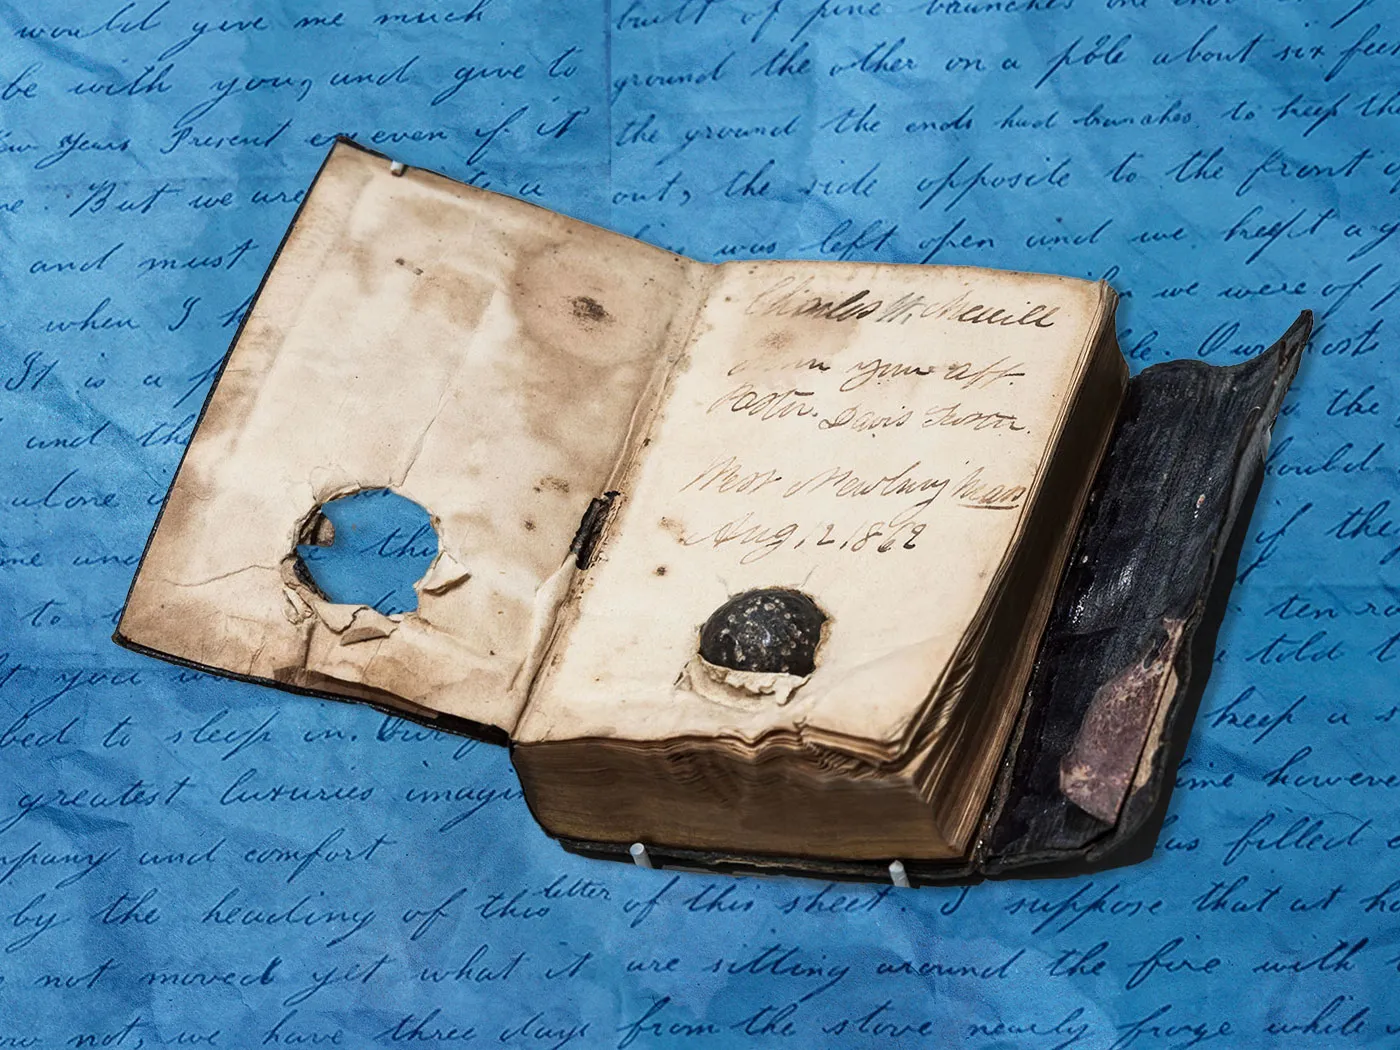 would give me much
be with you, and give to
New Years Present even if it
But we are
and must
when I
It is a
and the
alone
to
bed to sleep in.
greatest luxuries
company and comfort
by the heading of this letter
not moved yet what it
not, we have three days
built of pine branches one end
ground the other on a pole about six feet
the ground the ends had branches to keep the
out, the side opposite to the front
was left open and we kept a
we were of
Our
the
would
if they
ten
told
keep a
time however
was filled
of this sheet. I suppose that at
are sitting around the fire with
from the stove nearly froze while
Charles W. Merrill
from your aff.
Pastor. Davis Foster.
West Newbury Mass
Aug, 12, 1862